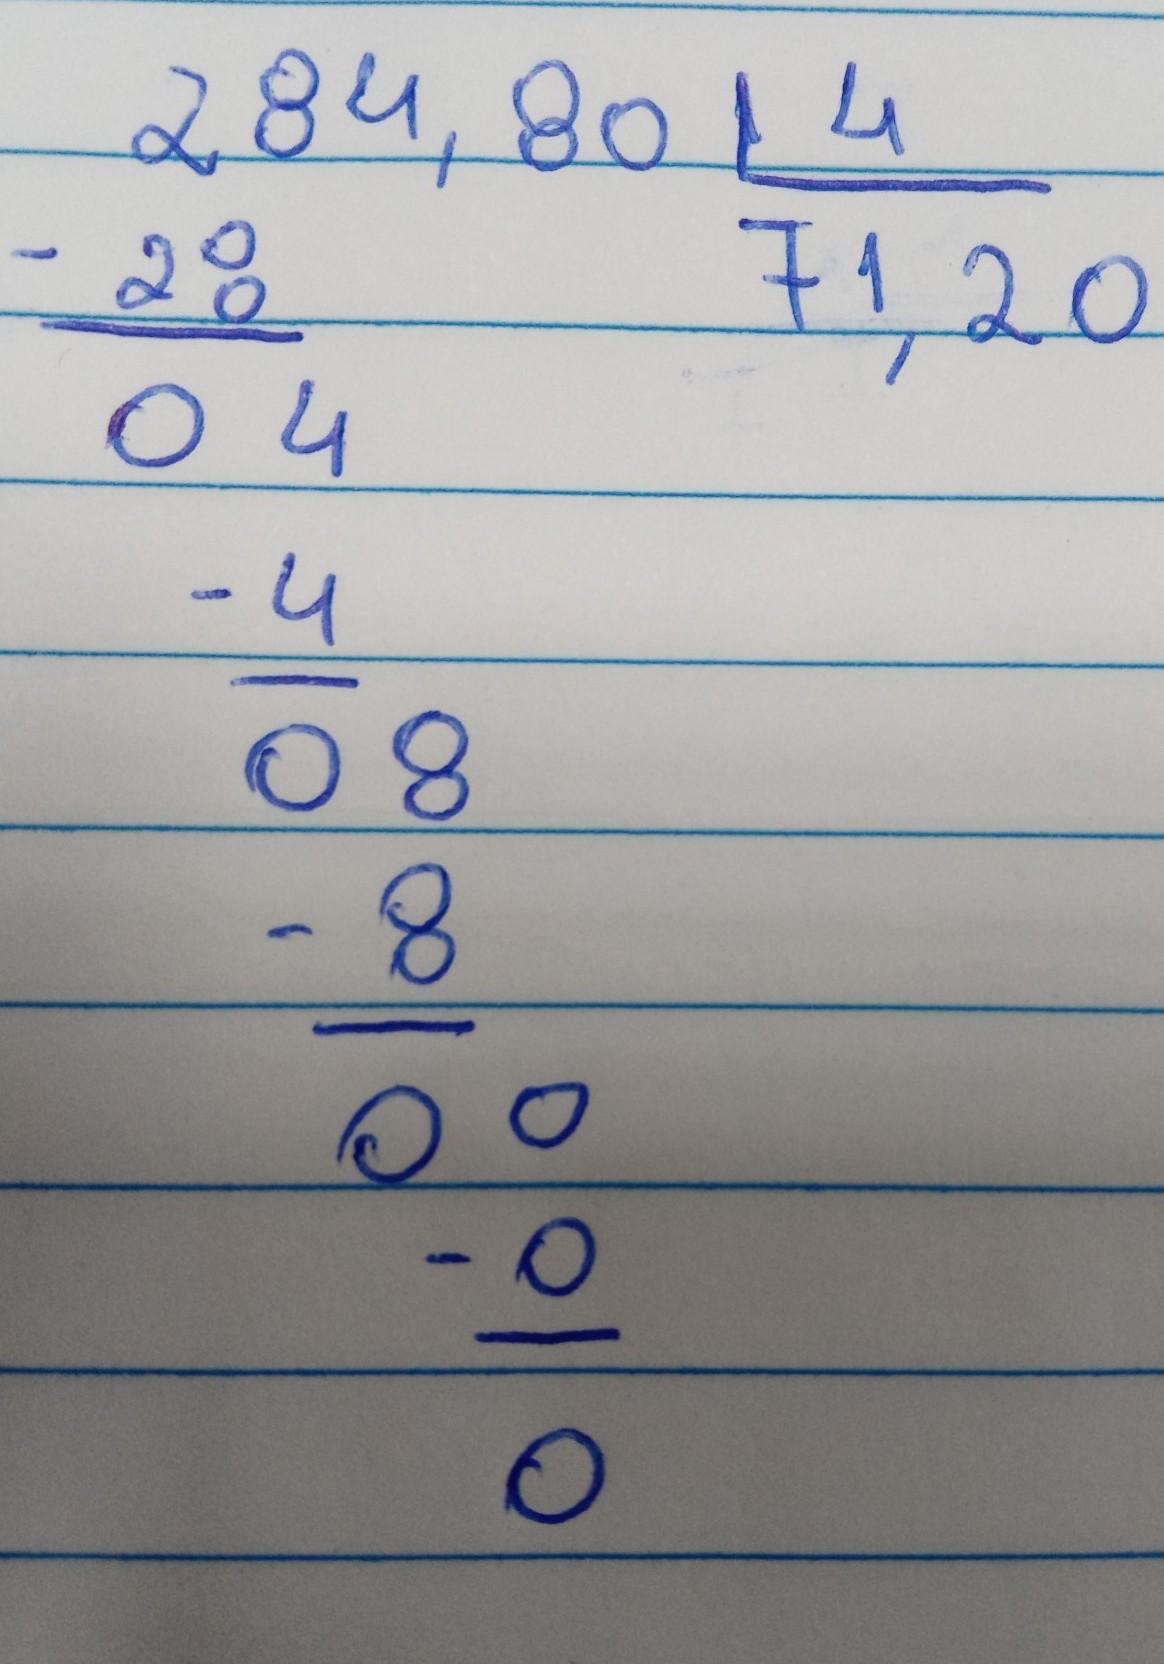 284,80 4
- 28 71,20
04
- 4
08
- 8
00
- 0
0